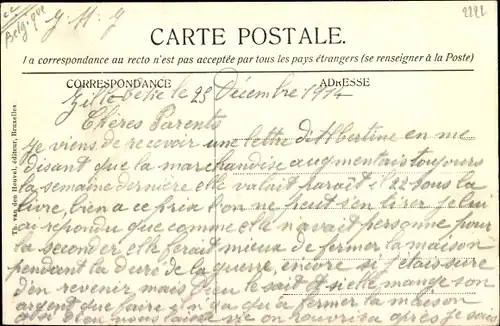 Belgique
J. M. J
2222
CARTE POSTALE.
La correspondance au recto n'est pas acceptée par tous les pays étrangers (se renseigner à la Poste)
CORRESPONDANCE
ADRESSE
Th. van den Heuvel, éditeur, Bruxelles
Zillebeke le 25 Décembre 1914
Chères Parents
Je viens de recevoir une lettre d'Albertine en me
disant que la marchandise augmentais toujours
la semaine dernière elle valait parait il 22 sous la
livre, bien a ce prix l'on ne peut s'en tirer je lui
ai repondu que comme elle n'avait personne pour
la seconder elle ferait mieux de fermer la maison
pendant la dure de la guerre, encore si j'etais sure
d'en revenir mais Dieu le sait et si elle mange son
argent que faire il n'y a qu'a fermer la maison
et si Dieu nous laisse vie on rouvrira après je sais